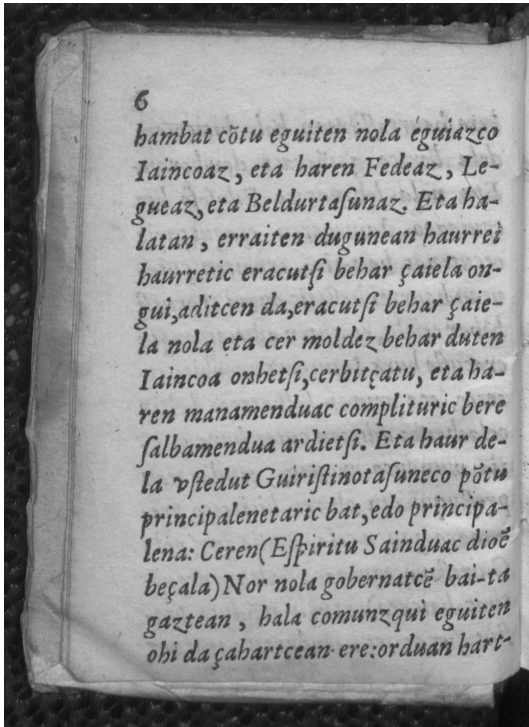 6
hambat cõtu eguiten nola eguiazco
Iaincoaz, eta haren Fedeaz, Le-
gueaz, eta Beldurtaſunaz. Eta ha-
latan, erraiten dugunean haurrei
haurretic eracutſi behar çaiela on-
gui,aditcen da,eracutſi behar çaie-
la nola eta cer moldez behar duten
Iaincoa onhetſi,cerbitçatu, eta ha-
ren manamenduac complituric bere
ſalbamendua ardietſi. Eta haur de-
la vſtedut Guiriſtinotaſuneco põtu
principalenetaric bat,edo principa-
lena: Ceren(Eſpiritu Sainduac dioẽ
beçala)Nor nola gobernatcẽ bai-ta
gaztean, hala comunzqui eguiten
ohi da çahartcean ere:orduan hart-